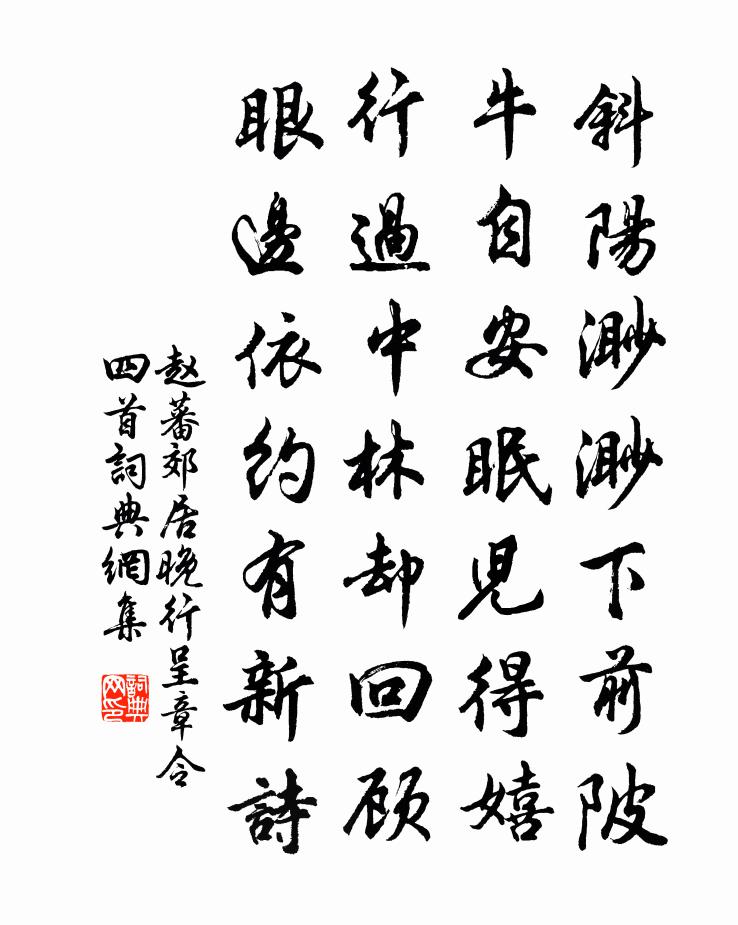 斜陽渺渺下前陂
牛自安眠児得嬉
行過中林却回顾
眼邊依約有新詩
赵蕃郊居晚行呈章令
四首詞典網集
詞典网印